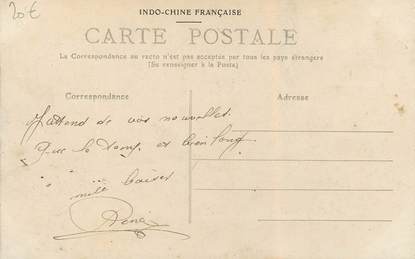 20€
INDO-CHINE FRANÇAISE
CARTE POSTALE
La Correspondance au recto n'est pas acceptée par tous les pays étrangers
(Se renseigner à la Poste)
Correspondance
Adresse
J'attend de vos nouvelles.
Que le temp est bien long
mille baiser
René